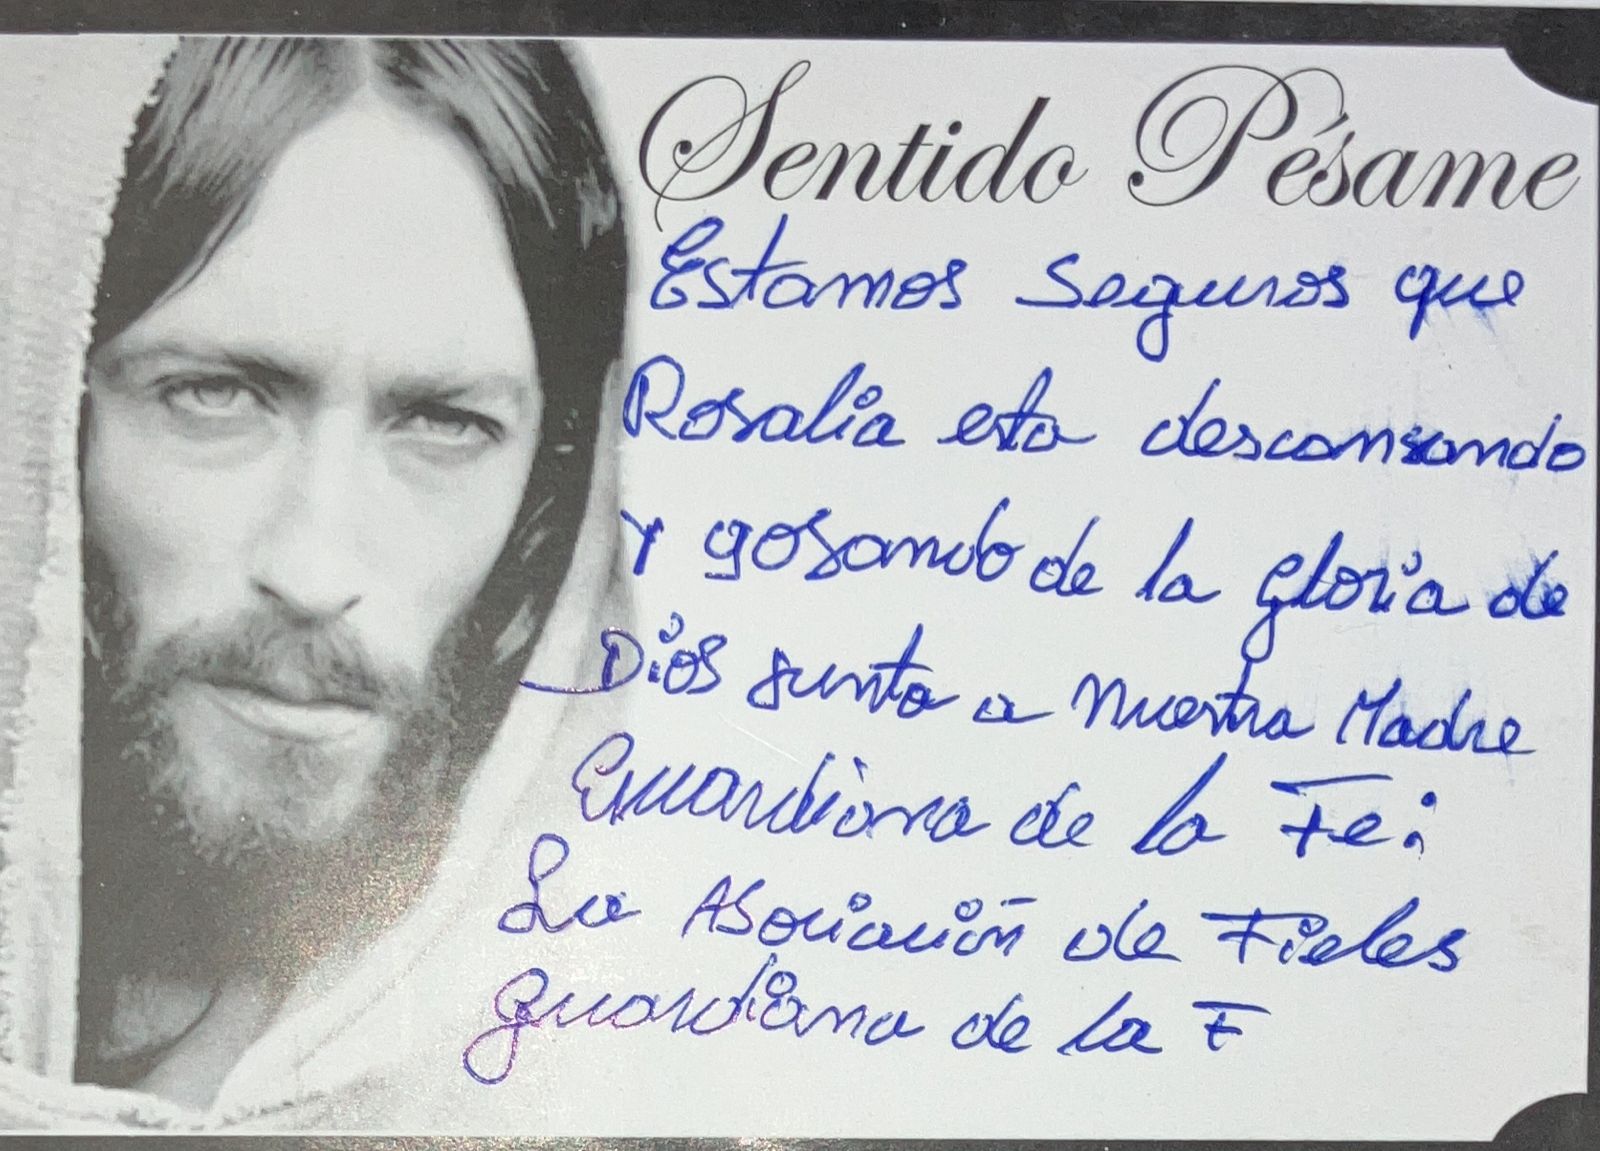 Sentido Pésame
Estamos seguros que
Rosalia esta descansando
y gosando de la gloria de
Dios junto a nuestra Madre
Guardiana de la Fe:
La Asociación de Fieles
guardiana de la F